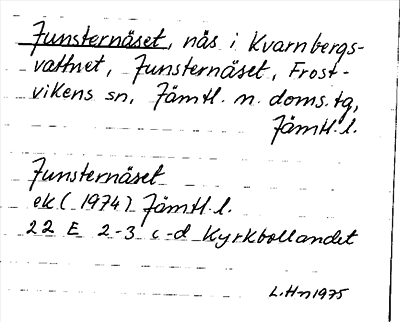 Junsternäset, näs i Kvarnbergs-
vattnet, Junsternäset, Frost-
vikens sn, Jämtl. n. doms. tg,
Jämtl. l.
Junsternäset
ek (1974) Jämtl. l.
22 E 2-3 c-d Kyrkbollandet
L.Hn 1975